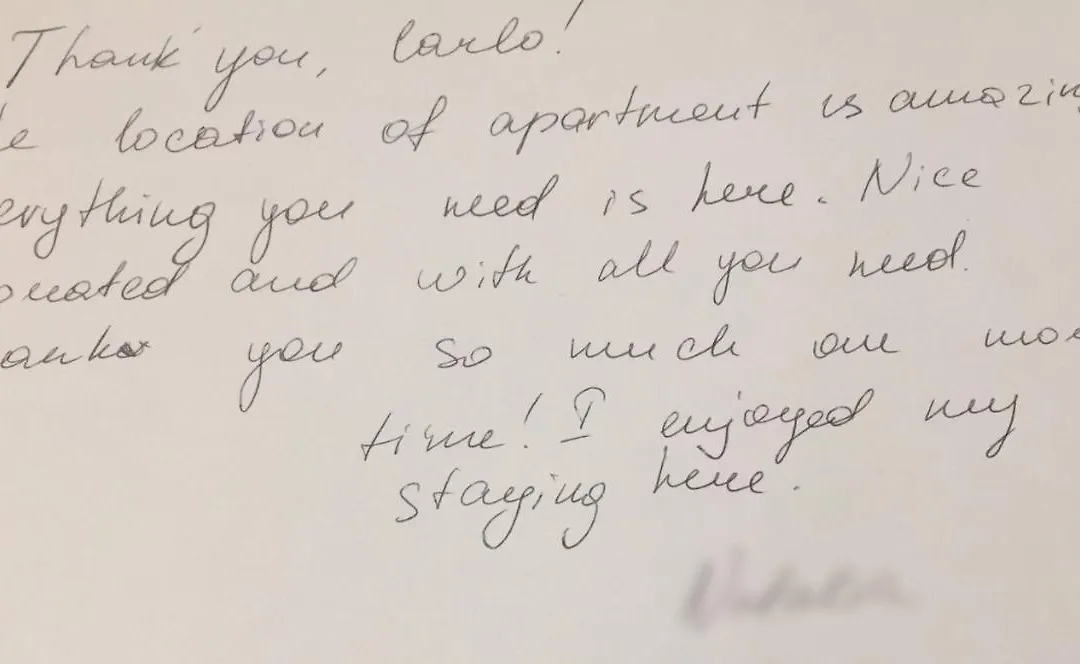 Thank you, Carlo!
e location of apartment is amazin
erything you need is here. Nice
ovated and with all you need.
anks you so much one mo
time! I enjoyed my
staying here.